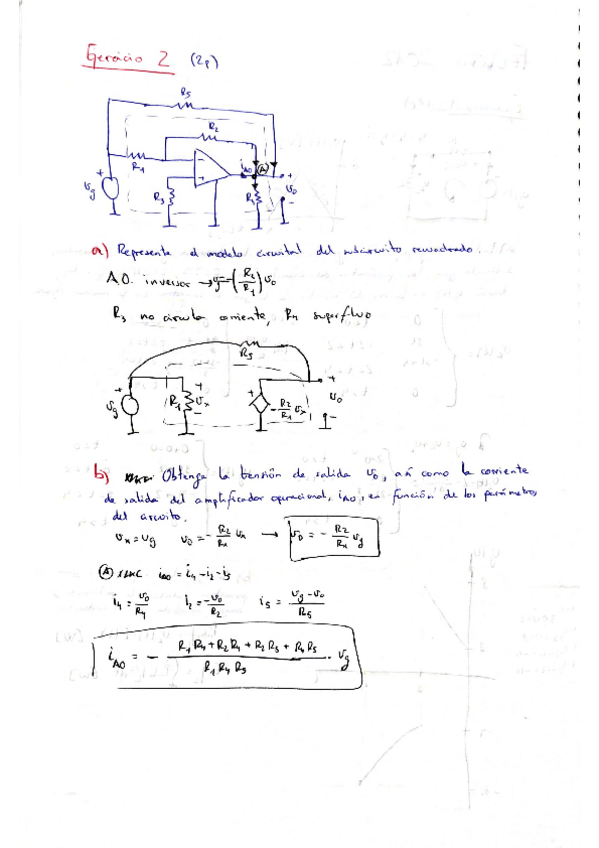 Ejercicio 2 (2p)
R5
R2
R1
iAO
(A)
+
vg
R3
R4
vo
-
a) Represente el modelo circuital del subcircuito recuadrado.
A.O. inversor → g=-(R2/R1) vo
R3 no circula corriente, R4 superfluo
R5
+
vg
R1
+
vx
-
+
-
-R2/R1 vx
+
vo
-
b) Obtenga la tensión de salida vo, así como la corriente
de salida del amplificador operacional, iAO, en función de los parámetros
del circuito.
vx = vg vo = - R2/R1 vx → vo = - R2/R1 vg
(A) iAO = i4 - i2 - i5
i4 = vo/R4 i2 = -vo/R2 i5 = vg - vo/R5
iAO = - R1 R4 + R2 R4 + R2 R5 + R4 R5 / R1 R4 R5 · vg